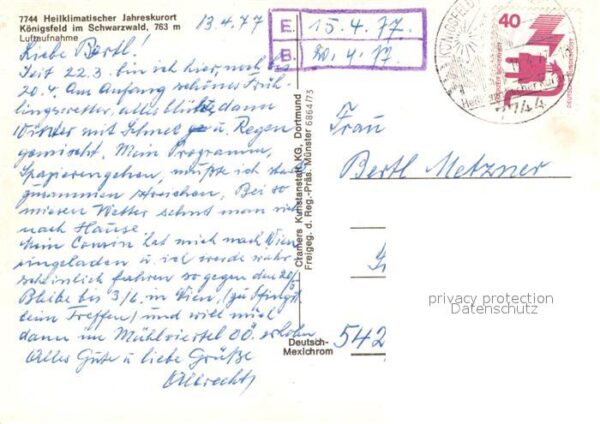 7744 Heilklimatischer Jahreskurort
Königsfeld im Schwarzwald, 763 m
Luftaufnahme
13.4.77
E. 15.4.77.
B. 20.4.77
Liebe Bertl!
Seit 22.3. bin ich hier, noch bis
20.4. Am Anfang schönes Früh-
lingswetter, alles blühte, dann
Winter mit Schnee u. Regen
gemischt. Mein Programm,
Spazierengehen, mußte ich
zusammen streichen. Bei so
miesen Wetter sehnt man sich
nach Hause.
Mein Cousin hat mich nach Wien
eingeladen u. ich werde wahr-
scheinlich fahren so gegen den 20/5
Bleibe bis 3/6. in Wien, (zu Pfingst.
beim Treffen) und will mich
dann im Mühlviertel OÖ. erholen
Alles Gute u liebe Grüße
Albrecht
Cramers Kunstanstalt KG, Dortmund
Freigeg. d. Reg.-Präs. Münster 6864/73
Deutsch-
Mexichrom
40
DEUTSCHE BUNDESPOST
7744
Frau
Bertl Metzner
542
privacy protection
Datenschutz